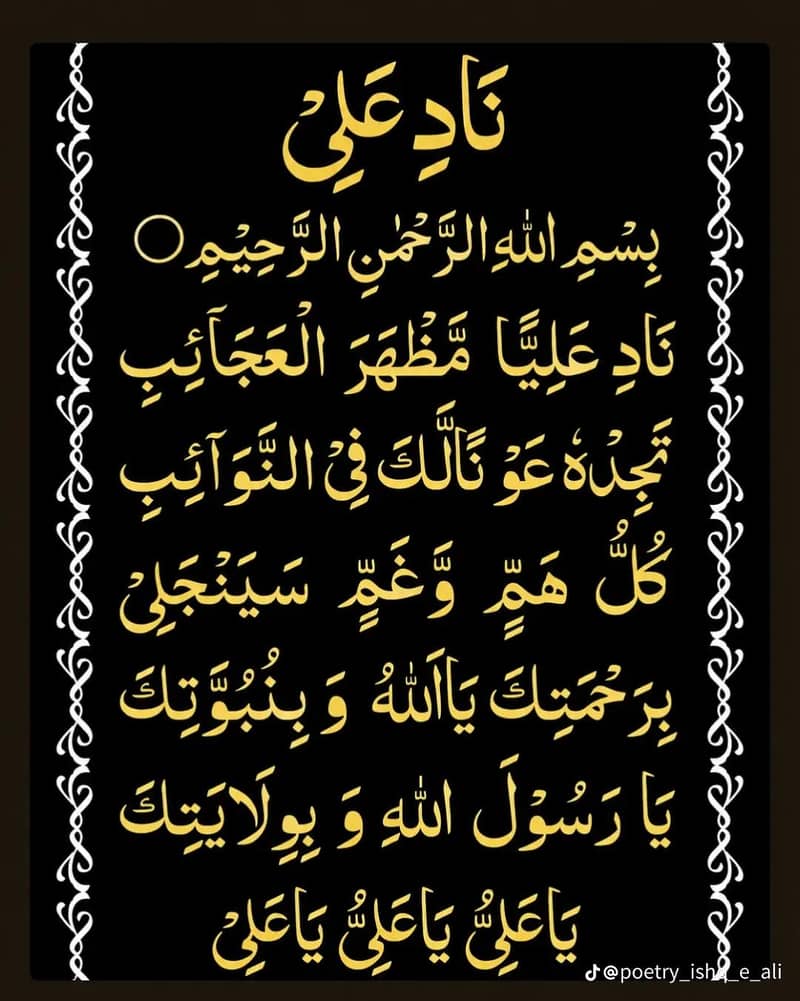 نَادِ عَلِیْ
بِسْمِ اللهِ الرَّحْمٰنِ الرَّحِیْمِ○
نَادِ عَلِیًّا مَّظْهَرَ الْعَجَآئِبِ
تَجِدْهُ عَوْ نًالَّكَ فِیْ النَّوَآئِبِ
كُلُّ هَمٍّ وَّغَمٍّ سَیَنْجَلِیْ
بِرَحْمَتِكَ یَااَللهُ وَ بِنُبُوَّتِكَ
یَا رَسُوْلَ اللهِ وَ بِوِلَایَتِكَ
یَاعَلِیُّ یَاعَلِیُّ یَاعَلِیْ
@poetry_ishq_e_ali